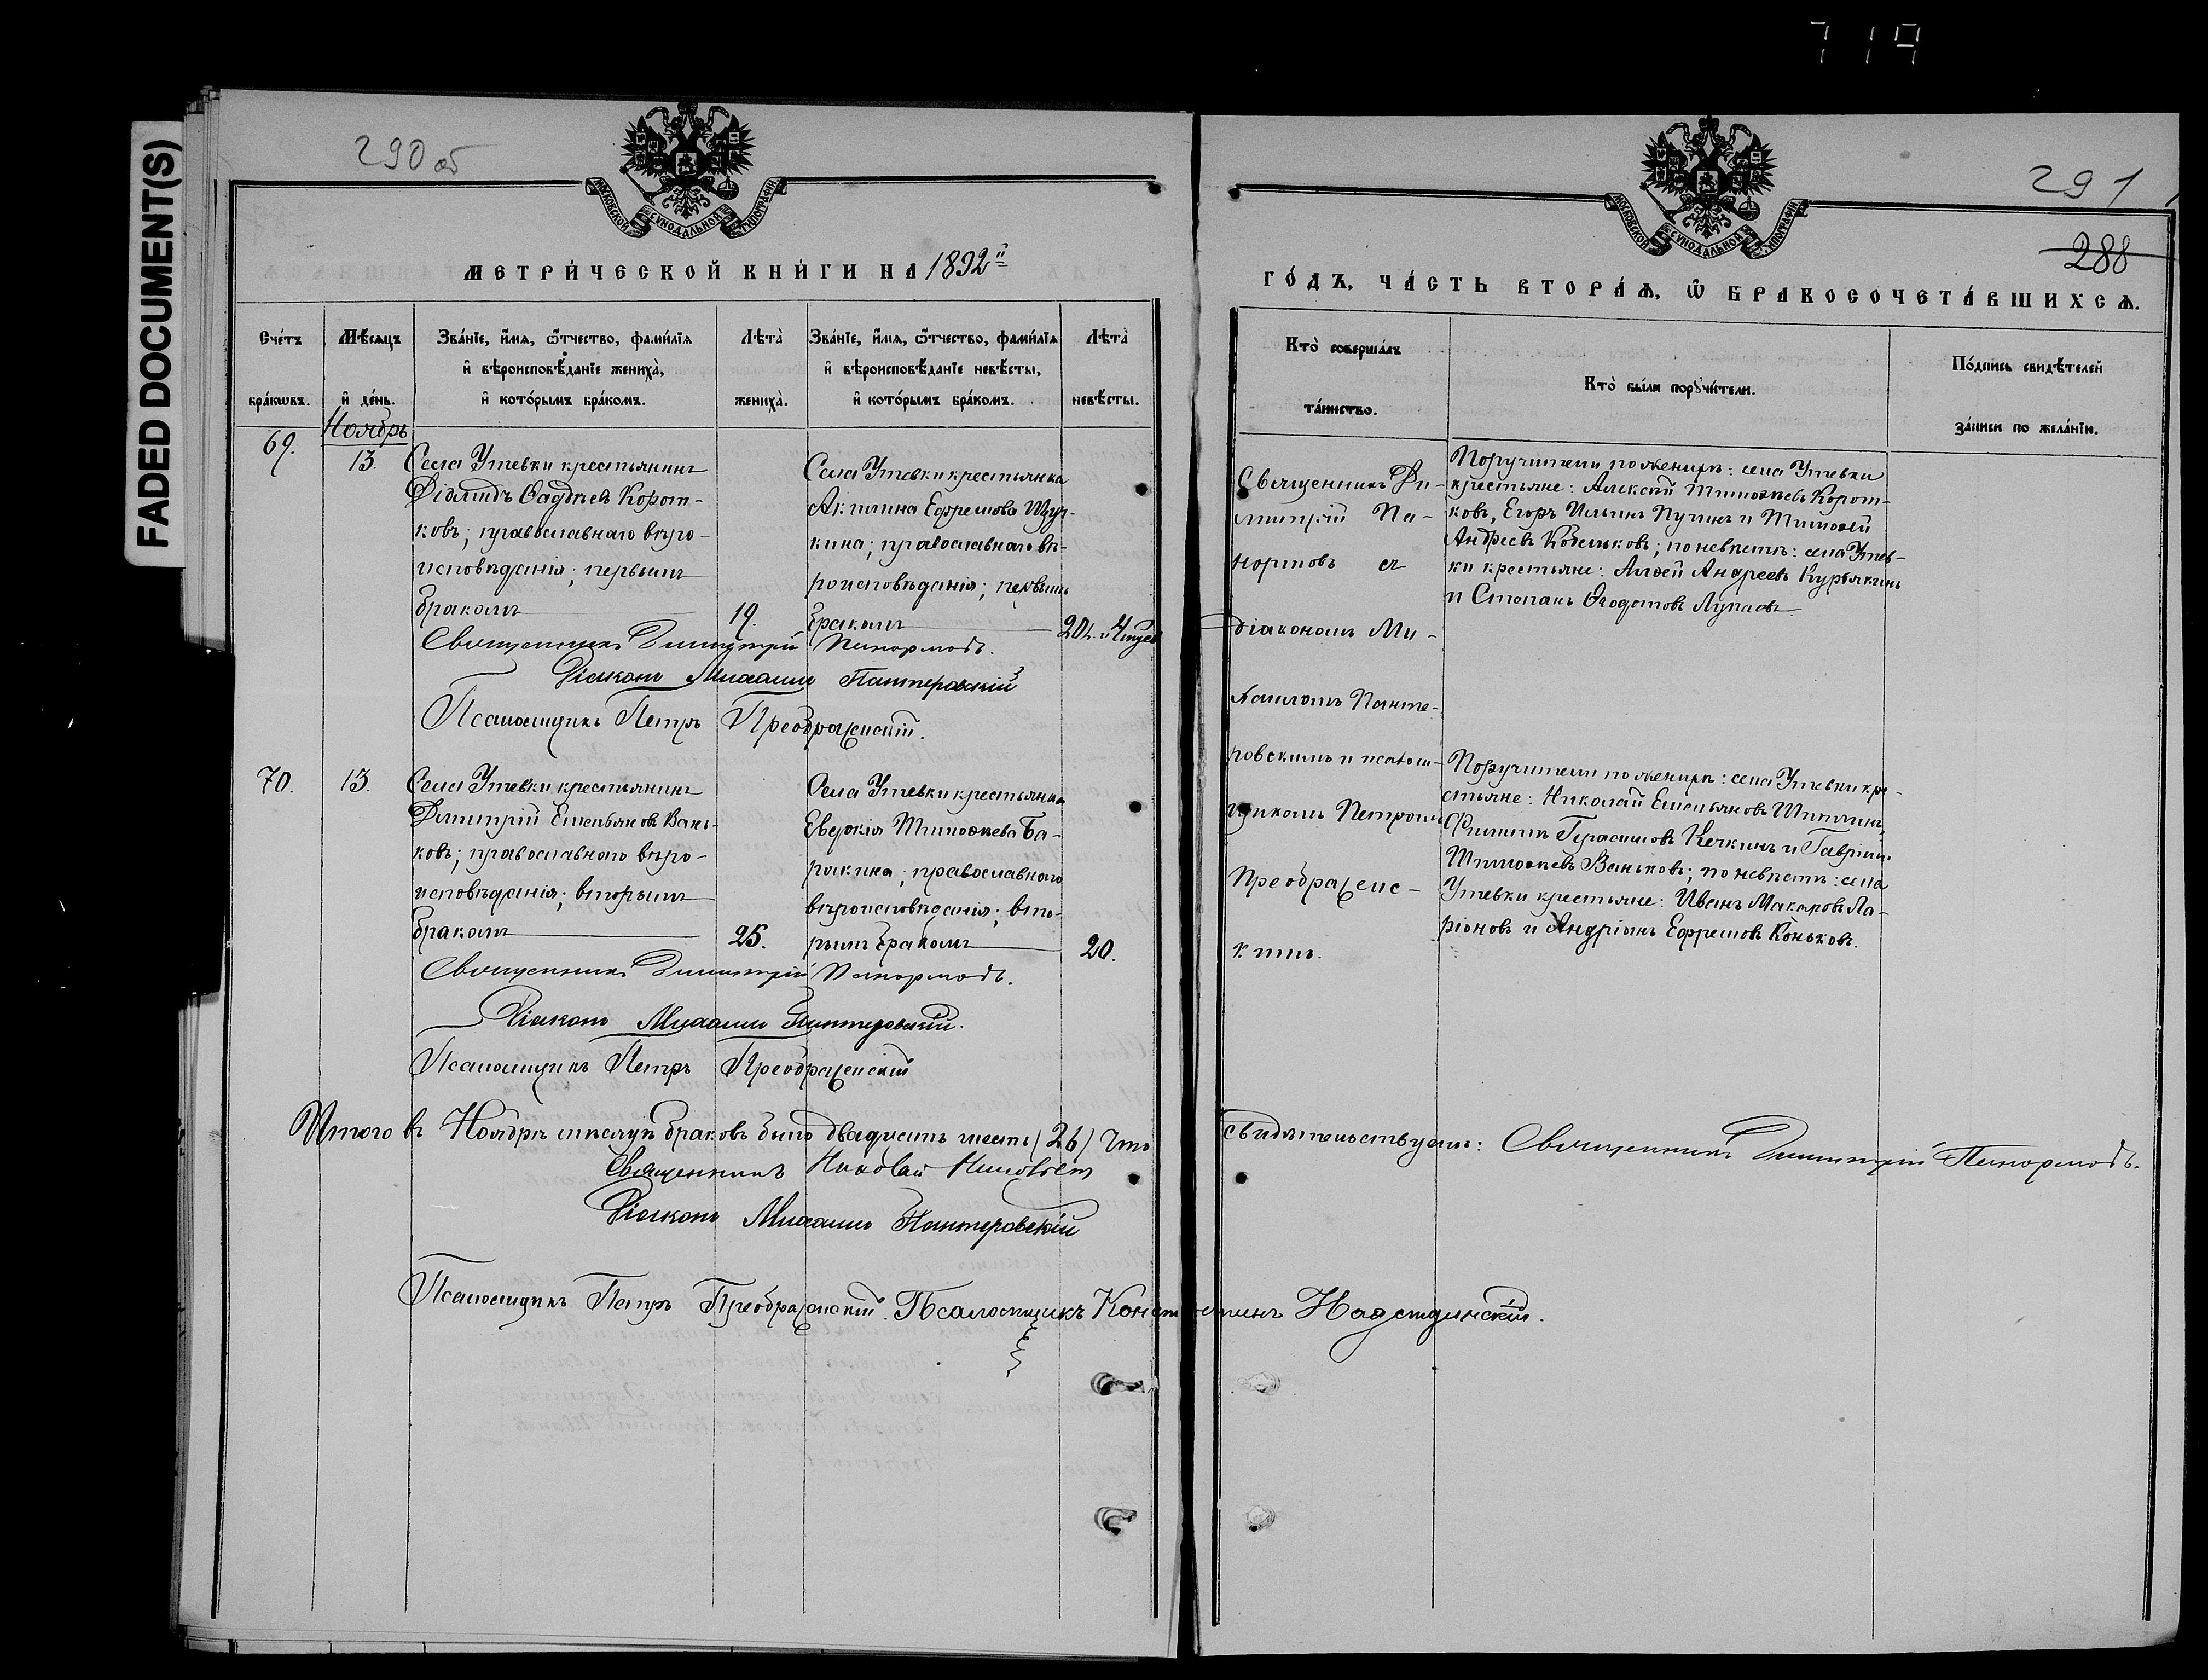 719
FADED DOCUMENT(S)
290 об
МОСКОВСКОЙ СѴНОДАЛЬНОЙ ТИПОГРАФІИ
МЕТРИ́ЧЕСКОЙ КНИ́ГИ НА 1892й
Сче́тъ бра́кωвъ.
Мѣ́сяцъ и҆ де́нь.
Зва́нїе, и҆́мя, ѻ҆́тчество, фами́лїя
и҆ вѣроисповѣ́данїе жениха̀,
и҆ кото́рымъ бра́комъ.
Лѣта̀
жениха̀.
Зва́нїе, и҆́мя, ѻ҆́тчество, фами́лїя
и҆ вѣроисповѣ́данїе невѣ́сты,
и҆ кото́рымъ бра́комъ.
Лѣта̀
невѣ́сты.
Ноябрь
69.
13.
Села Утевки крестьянинъ
Діомидъ Фаддѣевъ Корот-
ковъ; православнаго вѣро-
исповѣданія; первымъ
бракомъ
19.
Села Утевки крестьянка
Акилина Ефремова Щу-
кина; православнаго вѣ-
роисповѣданія; первымъ
бракомъ
20 л. и 4 мѣсяц
Священникъ Димитрій Панормовъ.
Діаконъ Михаилъ Пантеровскій
Псаломщикъ Петръ Преображенскій.
70.
13.
Села Утевки крестьянинъ
Димитрій Емельяновъ Вань-
ковъ; православнаго вѣро-
исповѣданія; вторымъ
бракомъ
25.
Села Утевки крестьянка
Евдокія Тимоѳеева Ба-
рикина; православнаго
вѣроисповѣданія; вто-
рымъ бракомъ
20.
Священникъ Димитрій Панормовъ.
Діаконъ Михаилъ Пантеровскій.
Псаломщикъ Петръ Преображенскій
Итого въ Ноябрѣ мѣсяцѣ браковъ было двадцать шесть (26) Что
Священникъ Николай
Діаконъ Михаилъ Пантеровскій
Псаломщикъ Петръ Преображенскій. Псаломщикъ Константинъ Надеждинскій.
291
288
МОСКОВСКОЙ СѴНОДАЛЬНОЙ ТИПОГРАФІИ
ГО́ДЪ, ЧА́СТЬ ВТОРА́Ѧ, Ѽ БРАКОСОЧЕТА́ВШИХСѦ.
Кто̀ соверша́лъ
та́инство.
Кто̀ бы́ли порꙋчи́тели.
По́дпись свидѣ́телей
за́писи по жела́нїи.
Священникъ Ди-
митрій Па-
нормовъ съ
діакономъ Ми-
хаиломъ Панте-
ровскимъ и псалом-
щикомъ Петромъ
Преображенс-
кимъ.
Поручители по женихѣ: села Утевки
крестьяне: Алексѣй Тимоѳеевъ Корот-
ковъ, Егоръ Ильинъ Пугинъ и Тимоѳей
Андреевъ Кобельковъ; по невѣстѣ: села Утев-
ки крестьяне: Алѳей Андреевъ Курякинъ
и Степанъ Ѳедотовъ Лупаевъ
Поручители по женихѣ: села Утевки кре-
стьяне: Николай Емельяновъ Шишкинъ,
Филиппъ Герасимовъ Кечкинъ и Гавріилъ
Тимоѳеевъ Ваньковъ; по невѣстѣ: села
Утевки крестьяне: Иванъ Макаровъ Ла-
ріоновъ и Андріанъ Ефремовъ Коньковъ.
свидѣтельствуемъ: Священникъ Димитрій Панормовъ.